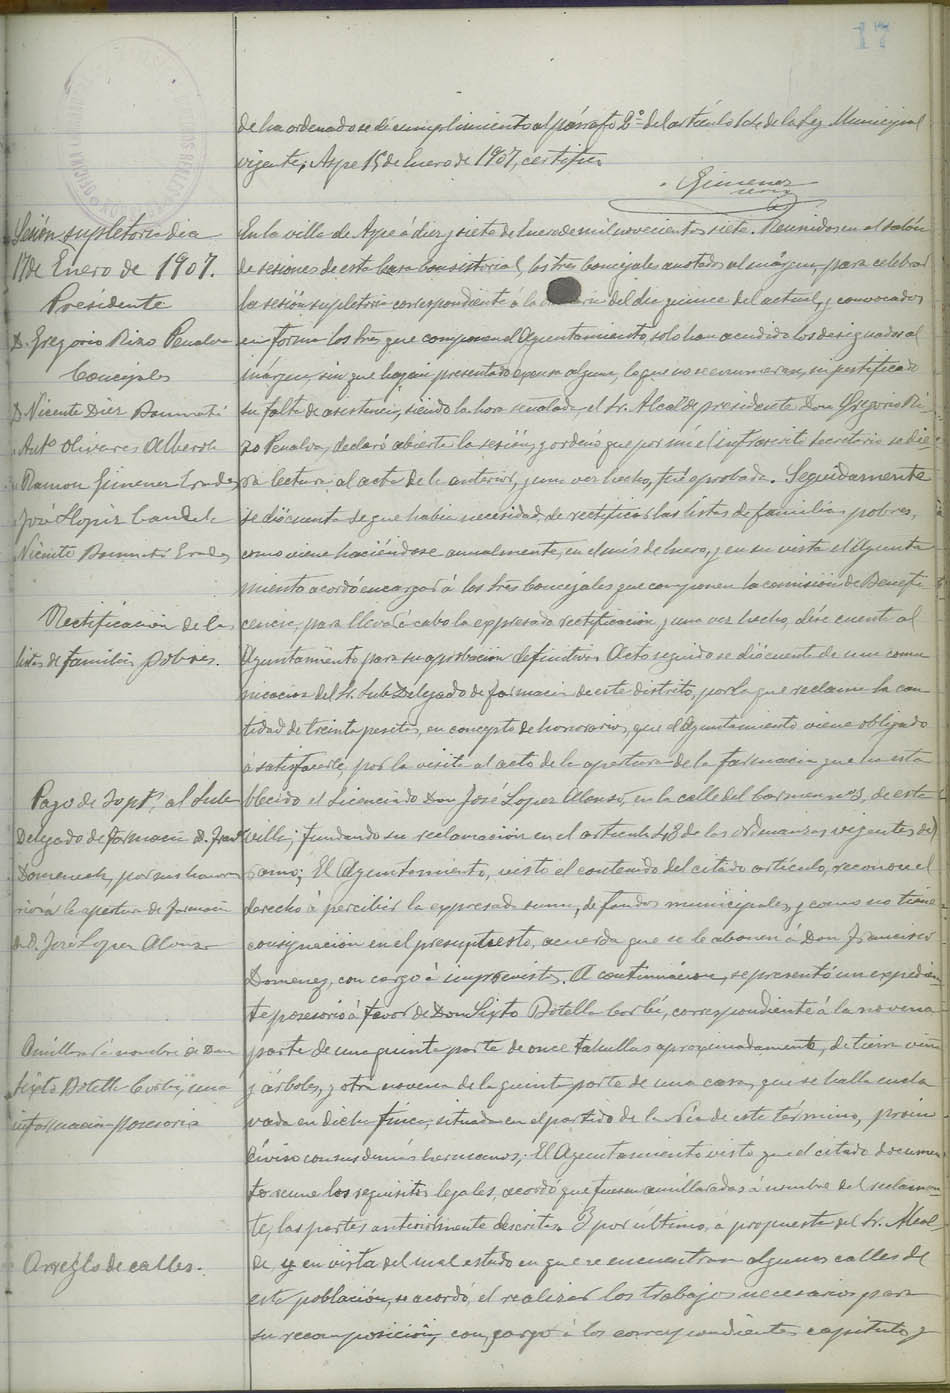 17
de ha ordenado se dé cumplimiento al párrafo 2º del artículo 104 de la Ley Municipal
vigente. Aspe 15 de Enero de 1907, certifico.
Gimenez
Sesión supletoria dia
17 de Enero de 1907.
Presidente
D. Gregorio Rizo Penalva
Concejales
D. Vicente Diez Bonmatí
Antº Olivares Alberola
Ramon Gimenez Erades
José Llopis Candela
Vicente Bonmatí Erades
Rectificación de las
listas de familias pobres.
Pago de 30 pts. al Sub
Delegado de farmacia D. Franº
Domenech, por sus hono
rarios á la apertura de farmacia
de D. José Lopez Alonso
Amillará nombre de Don
Sixto Botella Corbí, una
información posesoria
Arreglo de calles.
En la villa de Aspe á diez y siete de Enero de mil novecientos siete. Reunidos en el salón
de sesiones de esta Casa Consistorial, los tres Concejales anotados al márgen, para celebrar
la sesión supletoria correspondiente á la del dia quince del actual, y convocados
en forma los Sres que componen el Ayuntamiento, solo han acudido los designados al
márgen, sin que hayan presentado escusa alguna, los que no se enumeran, ni justificado
su falta de asistencia, siendo la hora señalada, el Sr. Alcalde presidente Don Gregorio Ri
zo Penalva, declaró abierta la sesión, y ordenó que por mí el infrascrito Secretario se die
ra lectura al acta de la anterior, y una vez hecho, fué aprobada. Seguidamente
se dió cuenta de que habia necesidad, de rectificar las listas de familias pobres,
como viene haciéndose anualmente, en el mes de Enero, y en su vista el Ayunta
miento acordó encargar á los tres Concejales que componen la comisión de Benefi
cencia, para llevar á cabo la expresada rectificación y una vez hecho, dése cuenta al
Ayuntamiento para su aprobación definitiva. Acto seguido se dió cuenta de una comu
nicacion del Sr. SubDelegado de farmacia de este distrito, por la que reclama la can
tidad de treinta pesetas, en concepto de honorarios, que el Ayuntamiento viene obligado
á satisfacerle, por la visita al acto de la apertura de la farmacia que ha esta
blecido el Licenciado Don José Lopez Alonso, en la calle del Carmen nº 3, de esta
villa; fundando su reclamación en el artículo 43 de las Ordenanzas vigentes del
ramo; El Ayuntamiento, visto el contenido del citado artículo, reconoce el
derecho á percibir la expresada suma, de fondos municipales, y como no tiene
consignación en el presupuesto, acuerda que se le abonen á Don Francisco
Domenez, con cargo á imprevistos. A continuación, se presentó un expedien
te posesorio á favor de Don Sixto Botella Corbí, correspondiente á la novena
parte de una quinta parte de once tahullas aproximadamente, de tierra viña
y árboles, y otra novena de la quinta parte de una casa, que se halla encla
vada en dicha finca, situada en el partido de la de este término, proin
diviso con sus demás hermanos; El Ayuntamiento visto que el citado documen
to reune los requisitos legales, acordó que fuesen amillaradas á nombre del reclaman
te, las partes anteriormente descritas. Y por último, á propuesta del Sr. Alcal
de y en vista del mal estado en que se encuentran algunas calles de
esta población, se acordó, el realizar los trabajos necesarios para
su recomposición, con cargo á los correspondientes capítulos y